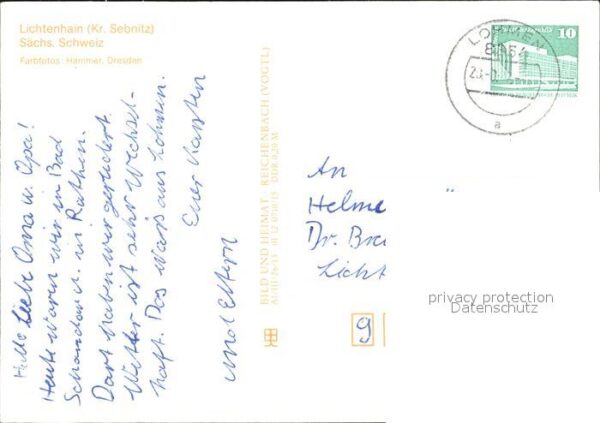 Lichtenhain (Kr. Sebnitz)
Sächs. Schweiz
Farbfotos: Hammer, Dresden
Hallo Liebe Oma u. Opa!
Heute waren wir in Bad
Schandau u. in Rathen.
Dort haben wir gerudert.
Wetter ist sehr wechsel-
haft. Das wars aus Lohmen.
Euer Karsten
und Eltern
BILD UND HEIMAT REICHENBACH (VOGTL)
DDR 0,20 M
LOHMEN
a
10
An
Helme
Dr. Bre
Licht
9
privacy protection
Datenschutz